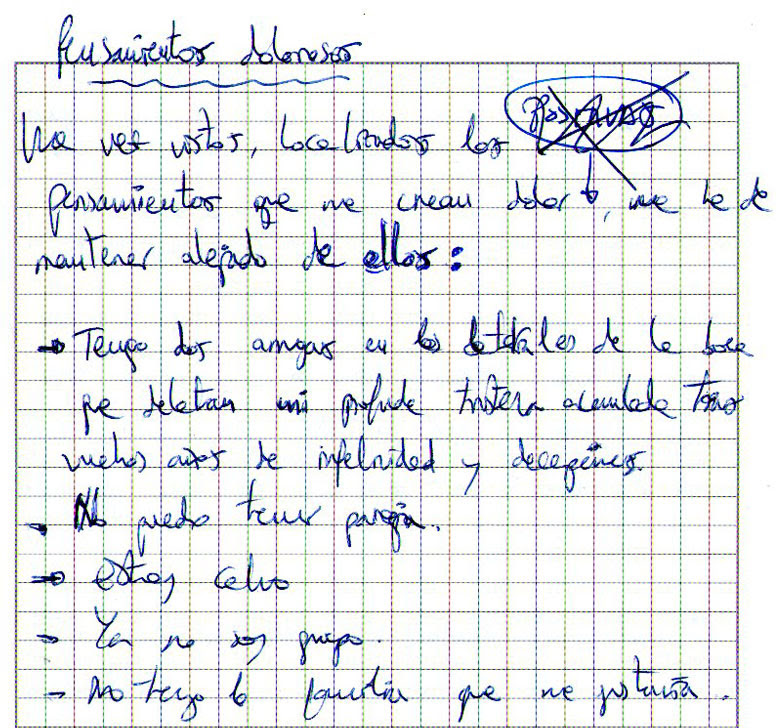 Pensamientos dolorosos
Una vez vistos, localizados los
pensamientos que me crean dolor, me he de
mantener alejado de ellos:
→ Tengo dos arrugas en los laterales de la boca
que delatan mi profunda tristeza acumulada tras
muchos años de infelicidad y decepciones.
→ No puedo tener pareja.
→ estoy calvo
→ Ya no soy guapo.
→ No tengo la familia que me gustaría.